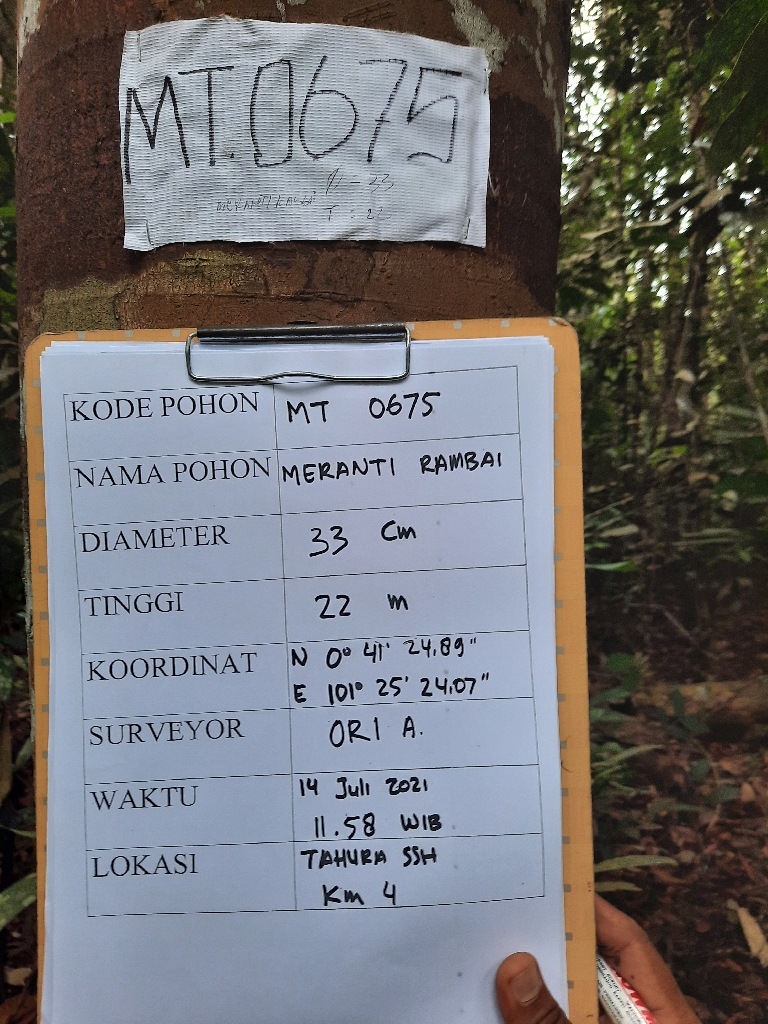 MT.0675
= 33
T : 22
KODE POHON MT 0675
NAMA POHON MERANTI RAMBAI
DIAMETER 33 Cm
TINGGI 22 m
KOORDINAT N 0° 41' 24.89"
E 101° 25' 24.07"
SURVEYOR ORI A.
WAKTU 14 Juli 2021
11.58 WIB
LOKASI TAHURA SSH
Km 4